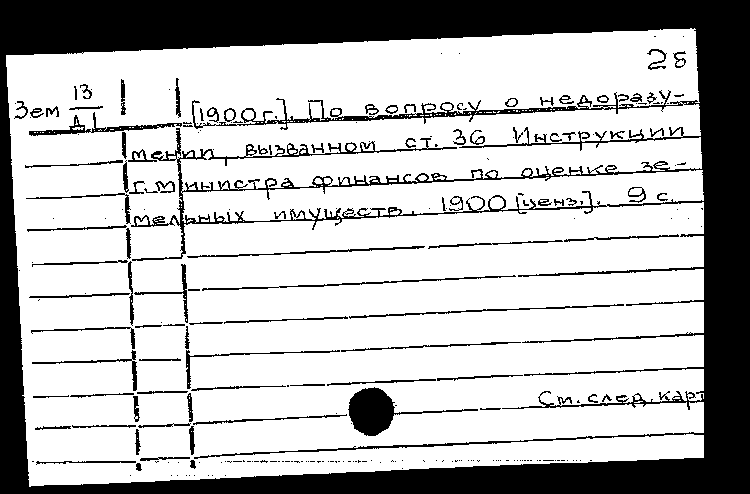 2б
Зем 13
Д1
[1900 г.]. По вопросу о недоразу-
мении, вызванном ст. 36 Инструкции
г. министра финансов по оценке зе-
мельных имуществ. 1900 [ценз.]. 9 с.
См. след. карт